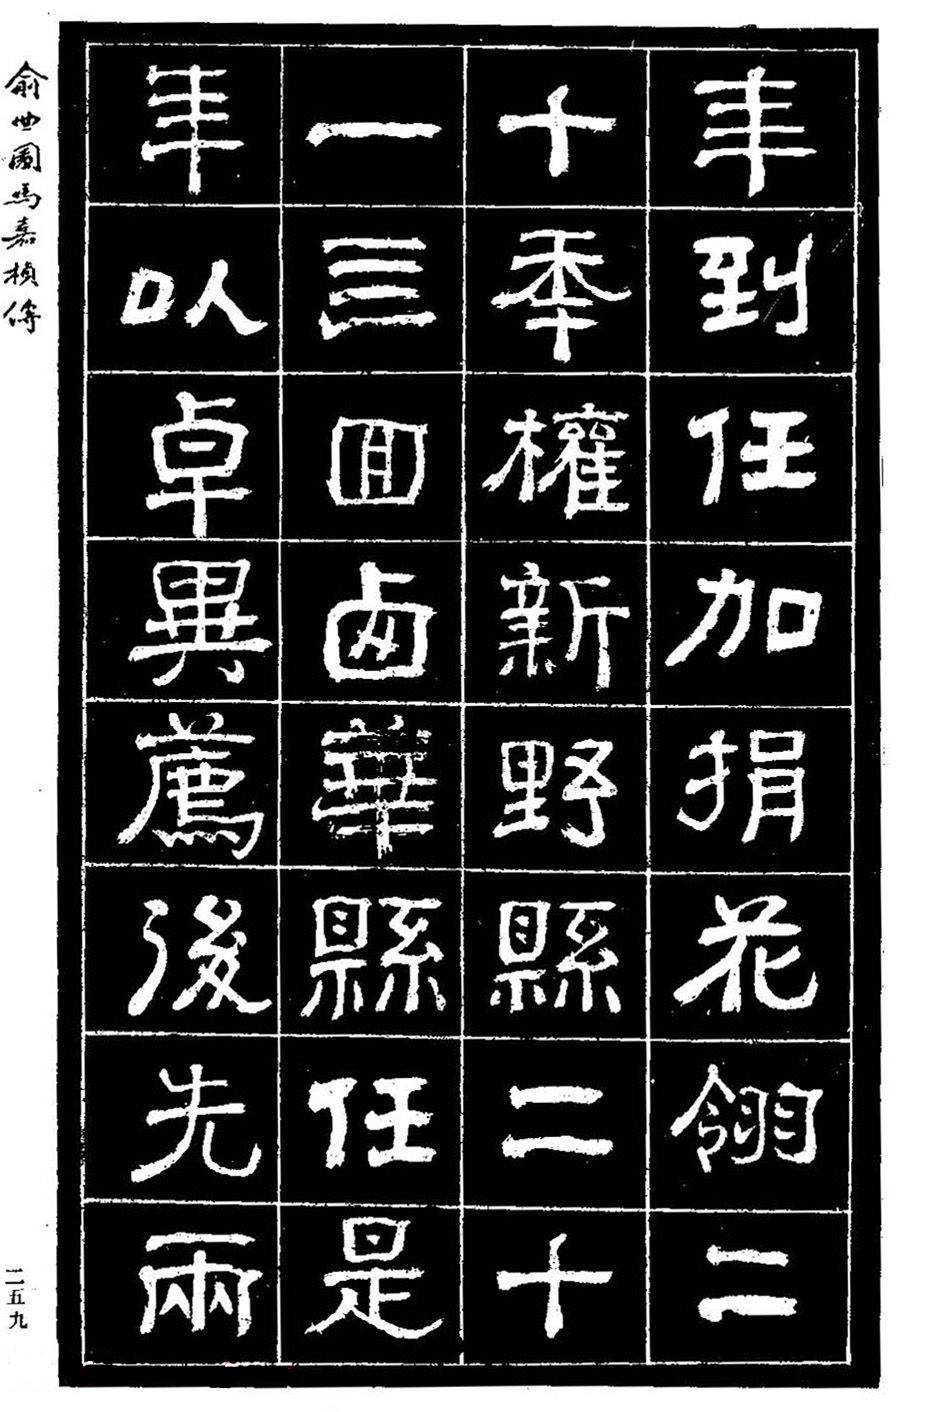 年到任加捐花翎二
十秊權新野縣二十
一亖回卥華縣任是
年以卓異薦後先兩
俞曲園馬嘉楨傳
二五九